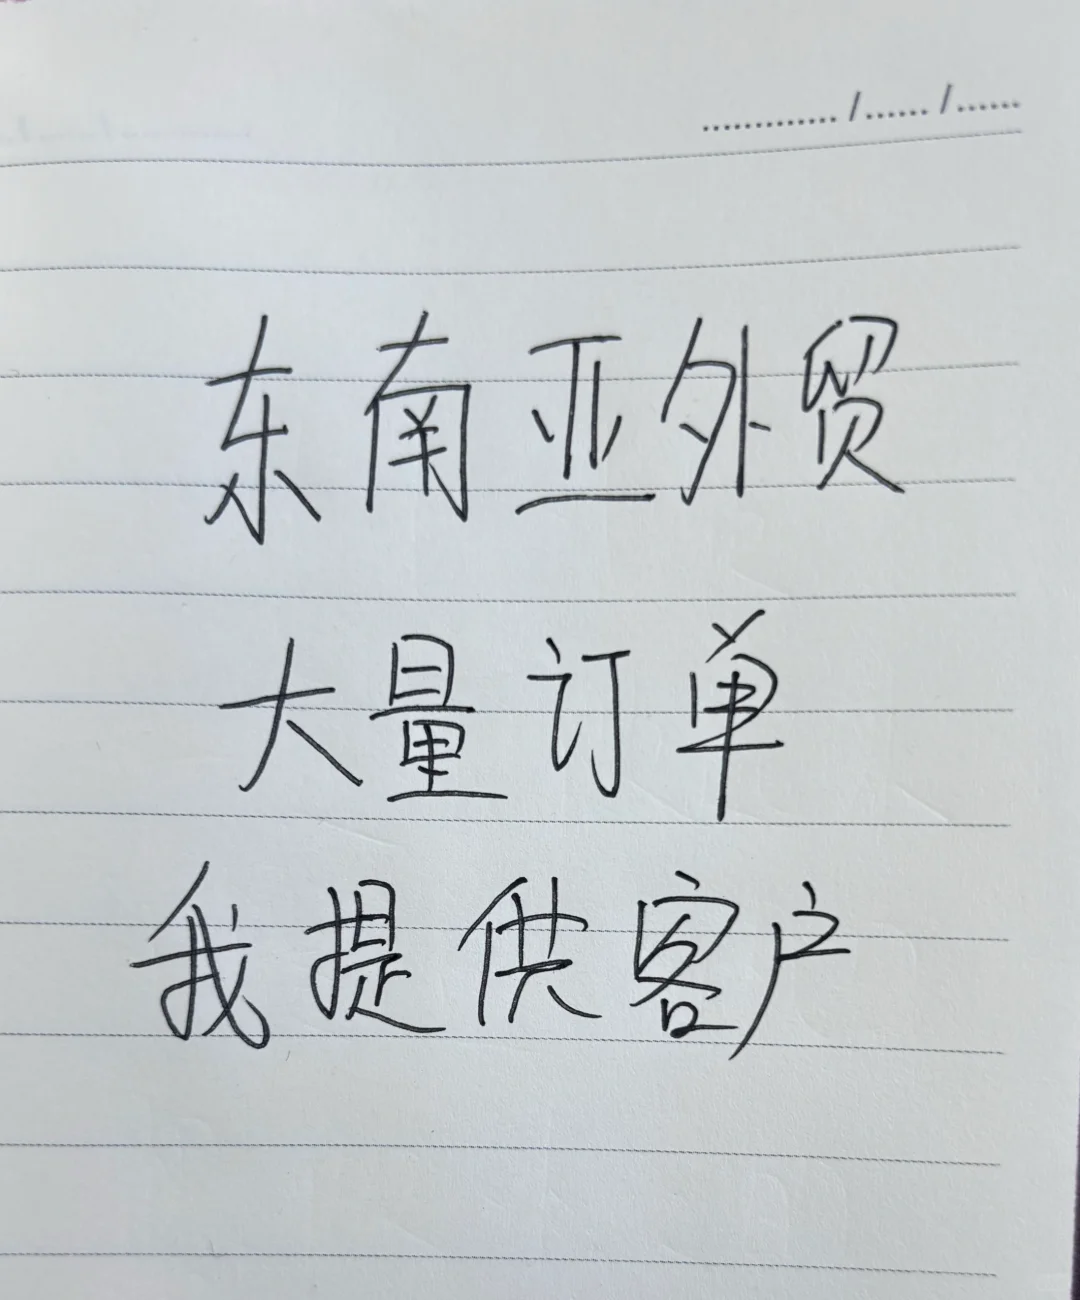 ............/....../......
东南亚外贸
大量订单
我提供客户